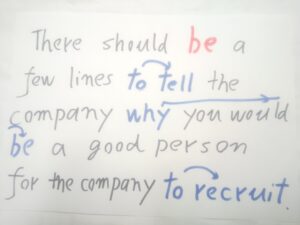 There should be a
few lines to tell the
company why you would
be a good person
for the company to recruit.